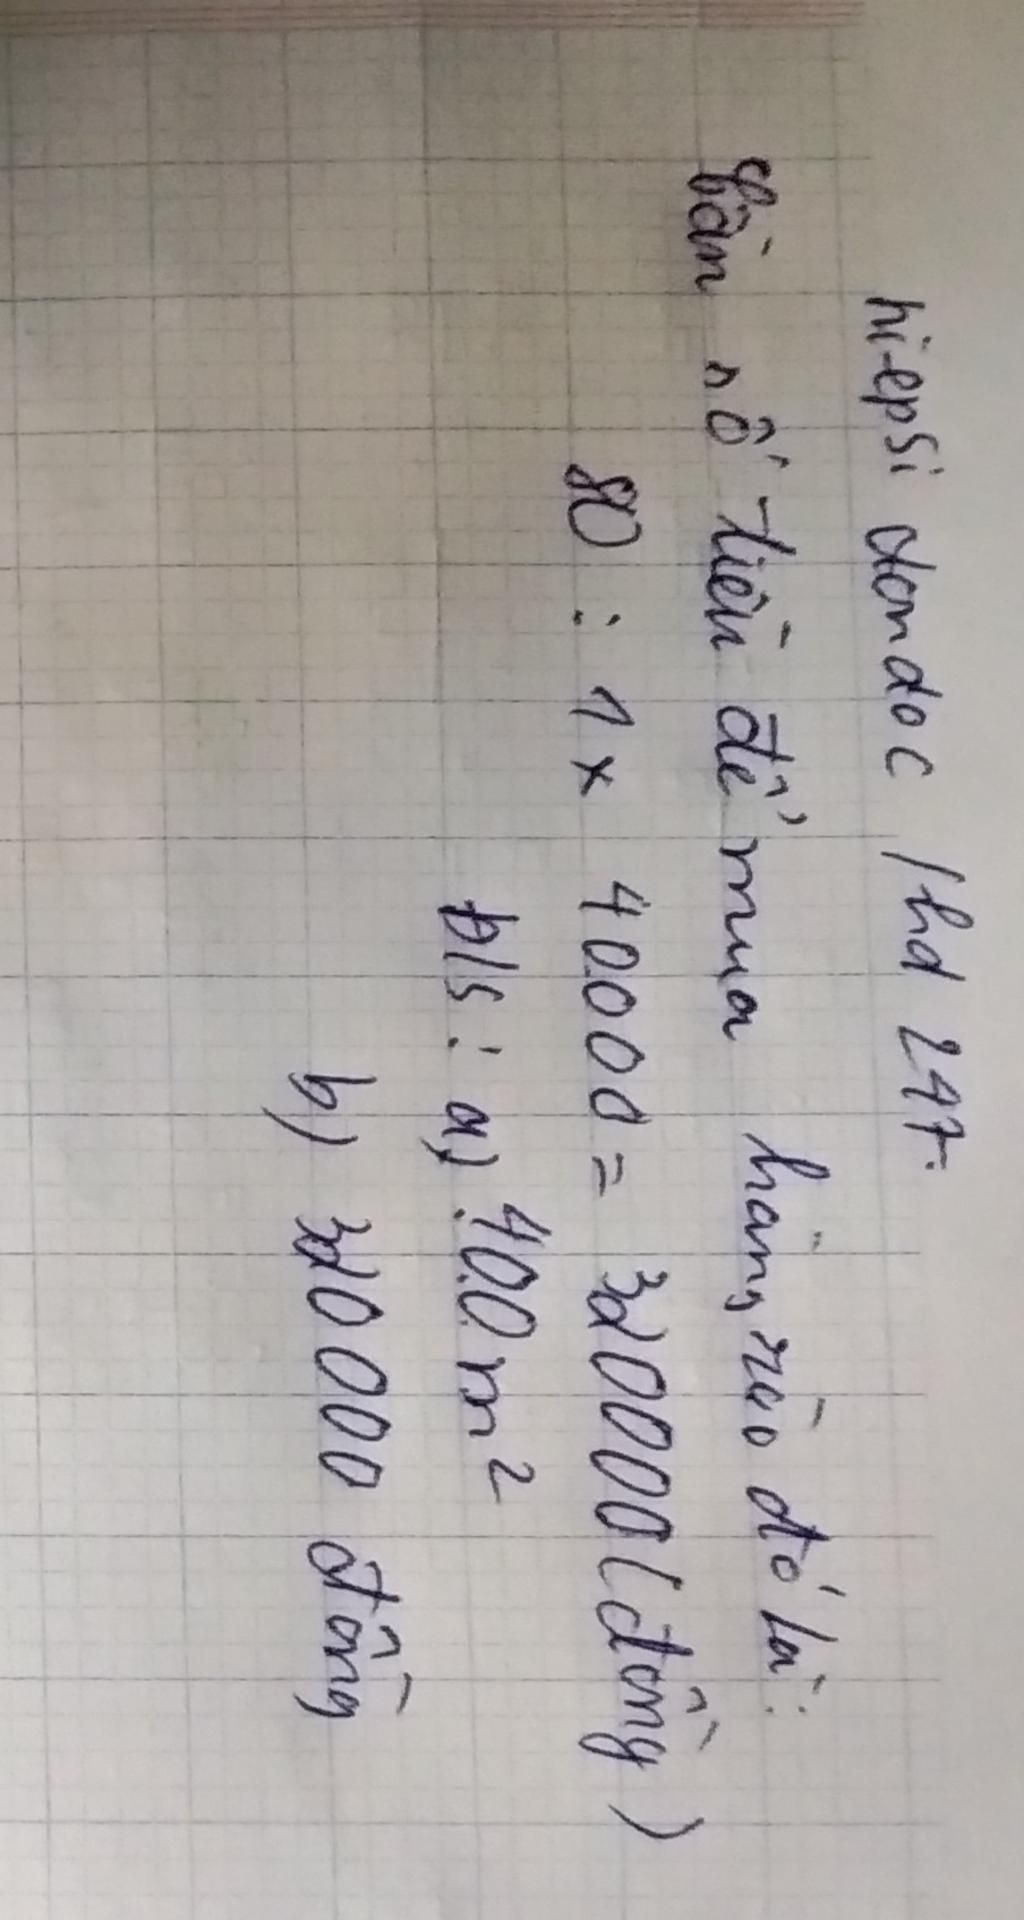 hi-epsi dondoc /hd 247.
Cần số tiền để mua hàng rào đó là:
80 : 1 x 40000 = 320000 (đồng)
Đ/S: a) 400 m²
b) 320 000 đồng